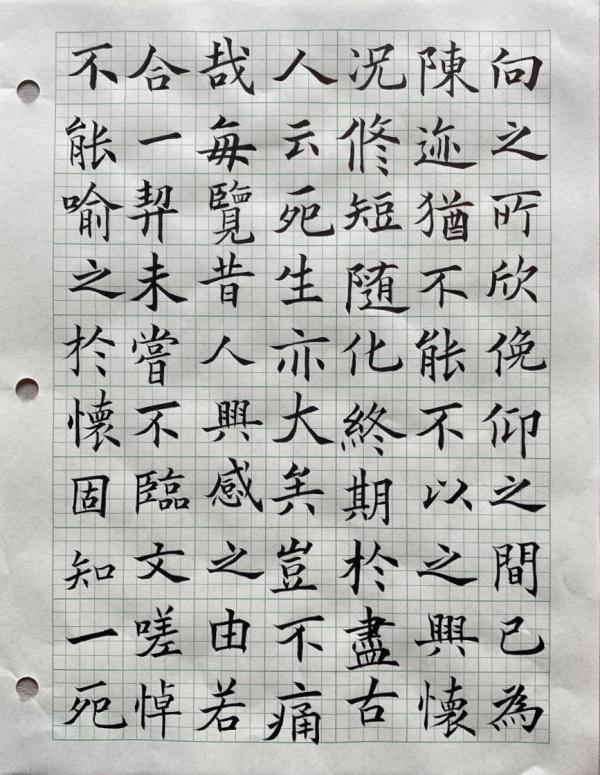 向之所欣俛仰之間已為
陳迹猶不能不以之興懷
况脩短隨化終期於盡古
人云死生亦大矣豈不痛
哉每覽昔人興感之由若
合一契未嘗不臨文嗟悼
不能喻之於懷固知一死